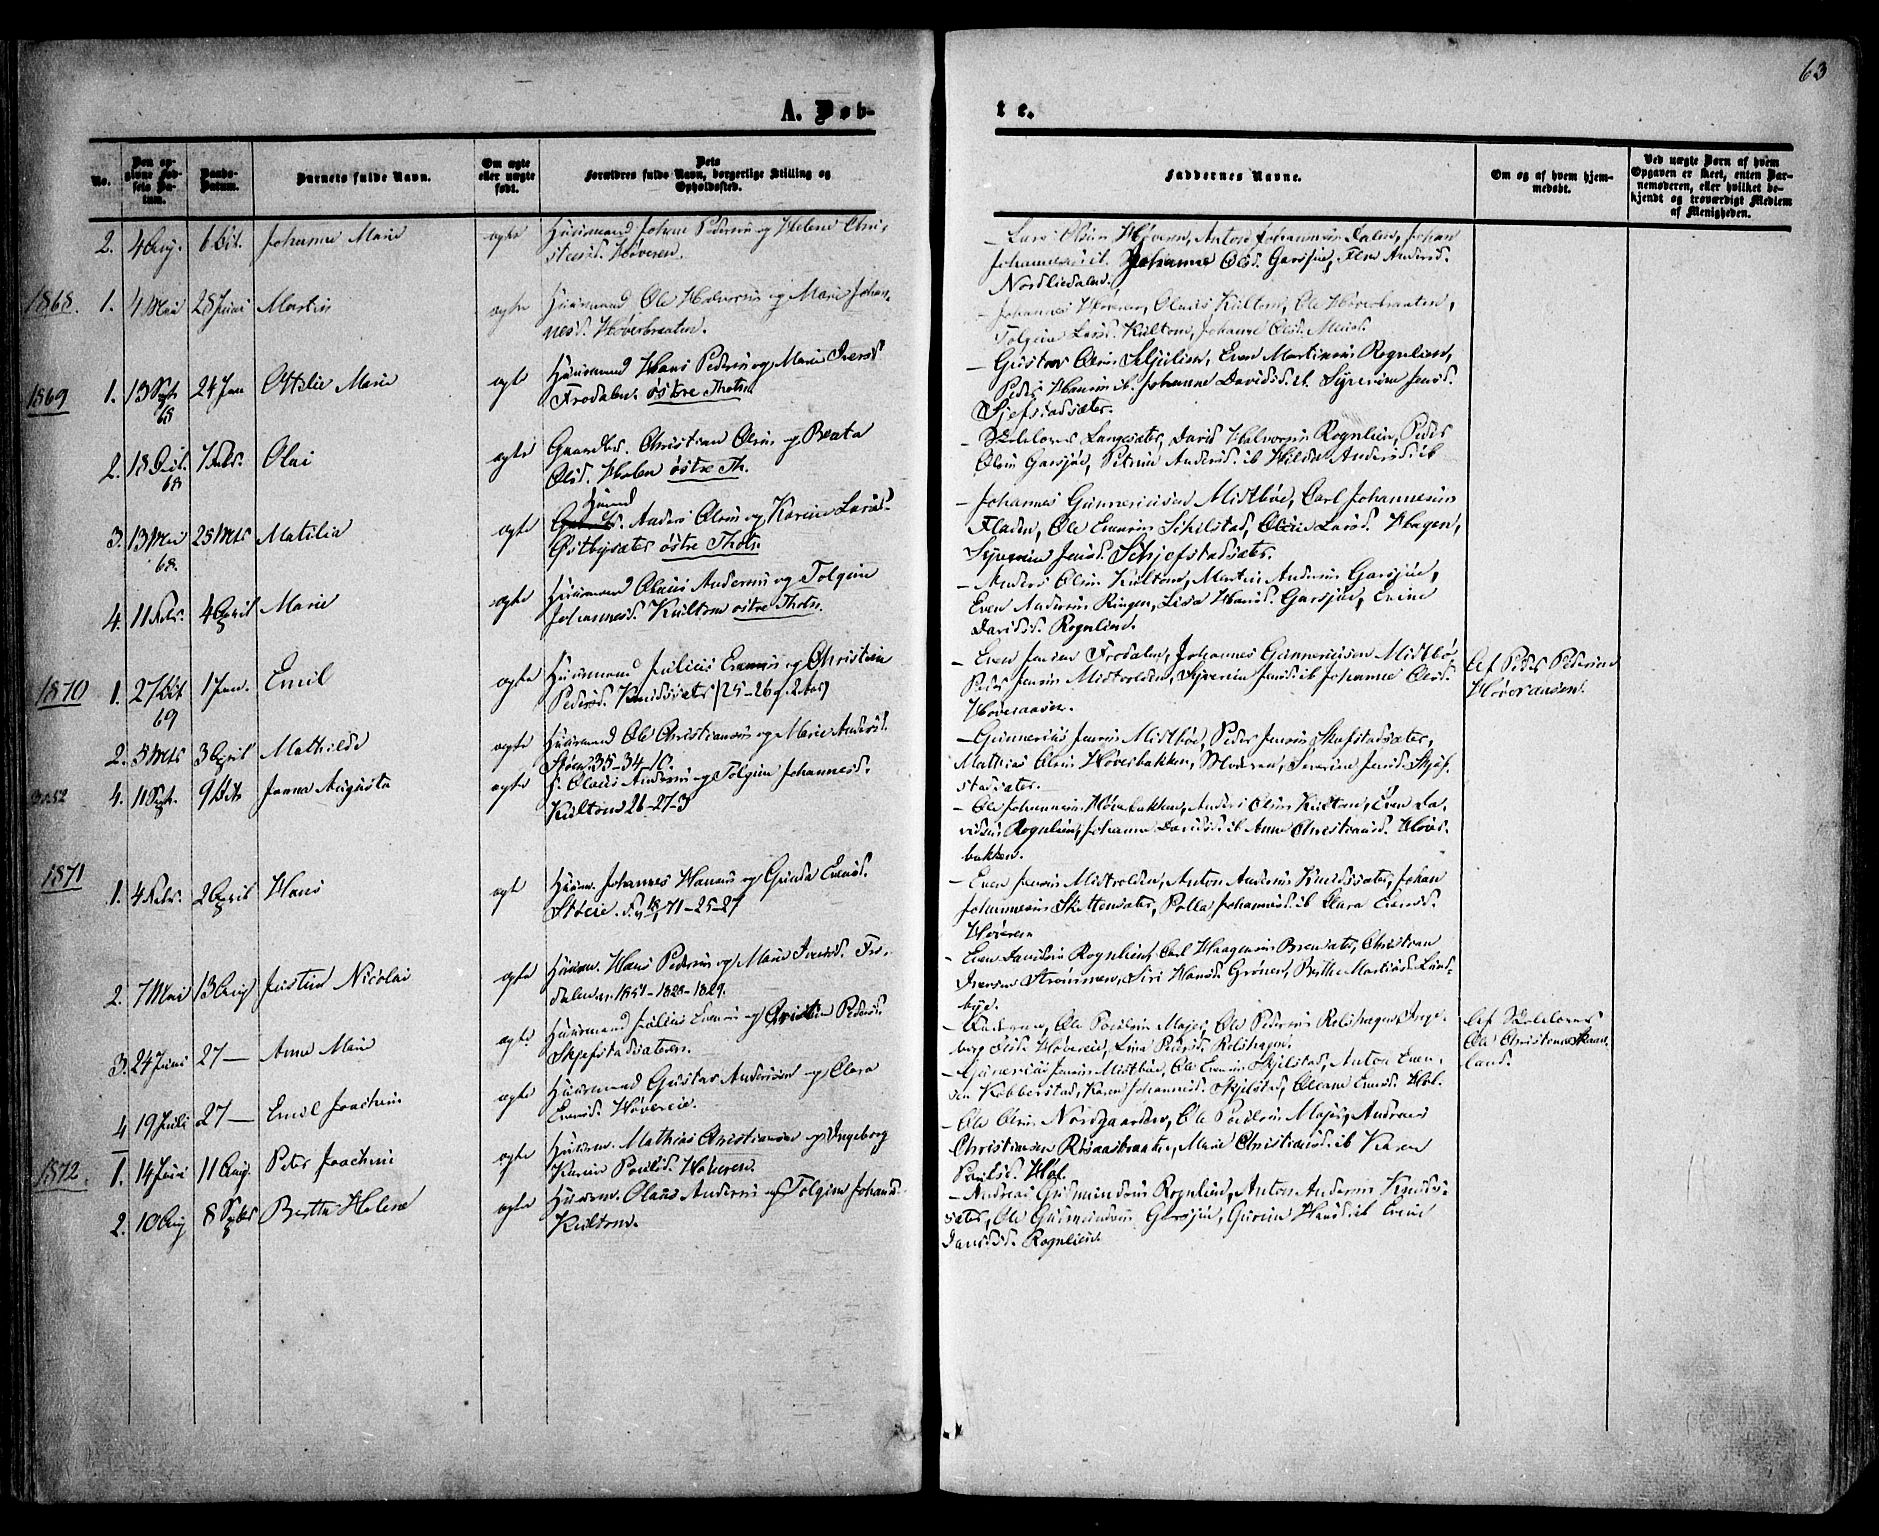 63
A. Døb-
te.
No.
Den op-
givne Fød-
sels Da-
tum.
Daabs-
Datum.
Barnets fulde Navn.
Om ægte
eller uægte
født.
Dets
Forældres fulde Navn, borgerlige Stilling og
Opholdssted.
Faddernes Navne.
Om og af hvem hjem-
medøbt.
Ved uægte Børn af hvem
Opgaven er skeet, enten Bar-
nemoderen, eller hvilket be-
kjendt og troværdigt Medlem
af Menigheden.
2. 4 Aug. 6 Oct. Johanne Marie ægte Huusmand Johan Pedersen og Helene Chri-
stensd. Høveren.
Lars Olsen Høveren, Anton Johannesen Dalen, Johan
Johannesen ib. Johanne Olsd. Garsjøe, Anders.
Nordliedalen.
1868. 1. 4 Mai 28 Juni Martin ægte Huusmand Ole Halvorsen og Marie Johan-
nesd. Høverbraaten.
Johannes Høveren, Olaus Kultom, Ole Høverbraaten,
Tolgine Larsd. Kultom, Johanne Olsd.
1869 1. 13 Sept. 68 24 Jan Ottilie Marie ægte Huusmand Hans Pedersen og Marie Iversd.
Frodalen. østre Thotn.
Gustav Olsen Skjulien, Even Martinsen Rognlien,
Peder Hansen ib. Johanne Davidsd. ib. Syverine Jensd.
Sjefstadsæter.
2. 18 Oct. 68 7 Febr. Olai ægte Gaardbr. Christian Olsen og Beata
Olsd. Holen østre Th.
Skolelærer Langsæter, David Halvorsen Rognlien, Peder
Olsen Garsjøe, Petrine Andersd. ib Hilda Andersd. ib
3. 13 Mai 68. 25 Mts Matilia ægte Huusmd Anders Olsen og Karine Larsd.
Østbysæter østre Thotn
Johannes Gunneriusen Midtbøe, Carl Johannesen
Fladen, Ole Evensen Skilstad, Oline Larsd. Hagen,
Syverine Jensd. Skjefstadsæter.
4. 11 Febr. 4 April Marie ægte Huusmand Olaus Andersen og Tolgine
Johannesd. Kultom østre Thotn.
Anders Olsen Kultom, Martin Andersen Garsjøe,
Even Andersen Ringen, Lisa Hansd. Garsjøe, Evine
Davidsd. Rognlien.
1870 1. 27 Oct 69 1 Jan. Emil ægte Huusmand Julius Evensen og Christine
Pedersd. Knudssæter (25-26 g. 2 br)
Even Jensen Frodalen, Johannes Gunneriusen Midtbø,
Peder Jensen Midtvolden, Syverine Jensd. ib Johanne Olsd.
Høveraasen.
Af Peder Pedersen
Høveraasen.
2. 8 Mts 3 April Mathilde ægte Huusmand Ole Christiansen og Marie Andersd.
Støen 35-34-10.
Gunnerius Jensen Midtbøe, Peder Jensen Skjefstadsæter,
Mathias Olsen Høverbakken, Moderen, Severine Jensd. Skjef-
stadsæter.
4. 11 Sept. 9 Oct. Janna Augusta ægte f. Olaus Andersen og Tolgine Johannesd.
Kultom 26-27-3
Ole Johannesen Høverbakken, Anders Olsen Kultom, Even Da-
vidsen Rognlien, Johanne Davidsd. ib Anne Christiansd. Høver-
bakken.
1871 1. 4 Febr. 2 April Hans ægte Huusm. Johannes Hansen og Gunda Evensd.
Støeie. 71-25-27
Even Jensen Midtvolden, Anton Andersen Knudssæter, Johan
Johannesen Skittensæter, Polla Johannesd. ib Clara Evensd.
Høveren
2. 7 Mai 13 Aug Justin Nicolai ægte Huusm. Hans Pedersen og Marie Iversd. Fro-
dalen 1851-1828-1829.
Even Davidsen Rognlien, Carl Haagensen Brensæter, Christian
Iversen Strømmen, Siri Hansd. Grønen, Berthe Martiasd. Lund-
bye.
3. 24 Juni 27 — Anne Marie ægte Huusmand Julius Evensen og Christine Pedersd.
Skjefstadsæteren.
Ole Poulsen Majer, Ole Pedersen Rolshagen, Inge-
borg Høvereie, Line Pedersd. Rolshagen.
Af Skolelærer
Ole Christensen Skaar-
land.
4 19 Juli 27 — Emil Joachim ægte Huusmand Gustav Andersen og Clara
Evensd. Høvereie.
Gunerius Jensen Midtbøe, Ole Evensen Skjelstad, Anton Even-
sen Kobberstad, Karen Johannesd. Skjelstad, Oleane Evensd. Hol.
1872. 1. 14 Juni 11 Aug. Peter Joachim ægte Huusm. Mathias Christiansen og Ingeborg
Karine Poulsd. Høveren.
Ole Olsen Nordgaarden, Ole Poulsen Majer, Andreas
Christiansen Rosaasbraaten, Marie Christiansd. ib Karen
Poulsd. Hol.
2. 10 Aug 8 Septbr Bertha Helene ægte Huusm. Olaus Andersen og Tolgine Johansd.
Kultom.
Andreas Gudmundsen Rognlien, Anton Andersen Knuds-
sæter, Ole Gudmundsen Garsjøe, Gurine Hansd. ib Evine
Davidsd. Rognlien.